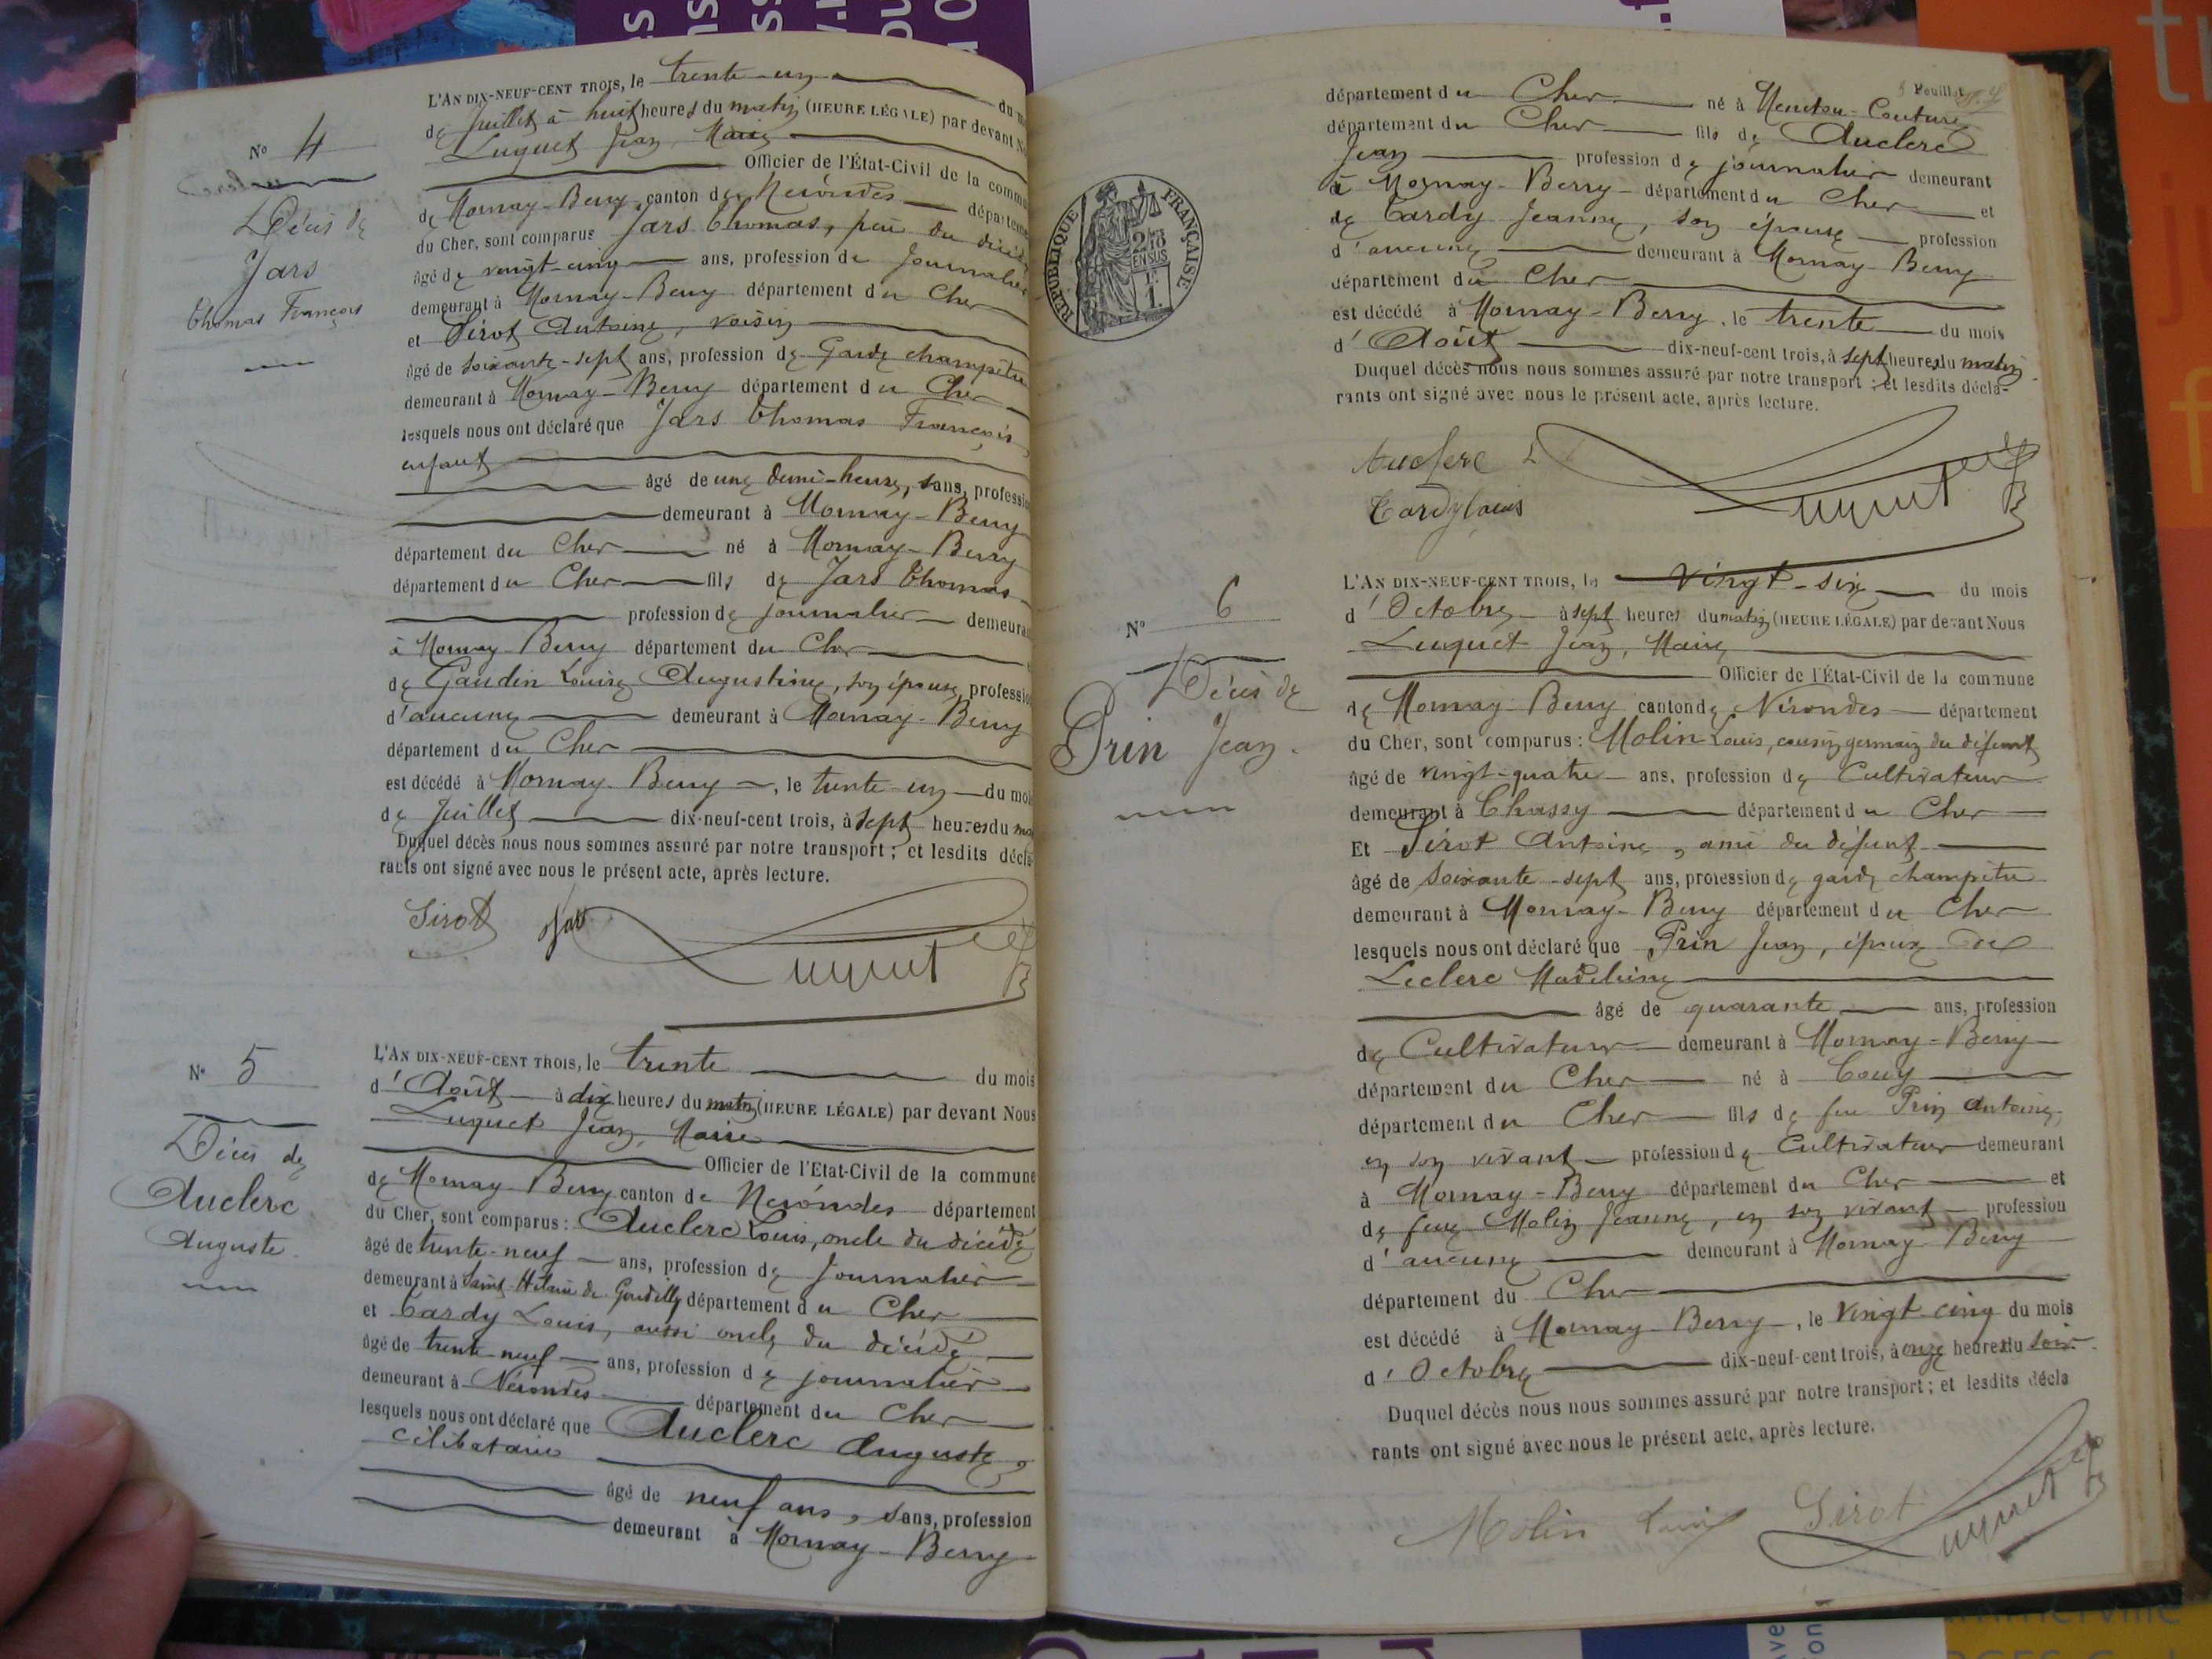 N° 4
Décès de
Jars
Thomas François
L'AN DIX-NEUF-CENT TROIS, le trente-un
de Juillet à huit heures du matin (HEURE LÉGALE) par devant
Luquet Jean, Maire
Officier de l'État-Civil de la
de Mornay-Berry, canton de Nérondes
du Cher, sont comparus Jars Thomas, père du décédé
âgé de vingt-cinq ans, profession de Journalier
demeurant à Mornay-Berry département du Cher
et Sirot Antoine, voisin
âgé de soixante-sept ans, profession de Garde champêtre
demeurant à Mornay-Berry département du Cher
lesquels nous ont déclaré que Jars Thomas François,
enfant
âgé de une demi-heure, sans,
demeurant à Mornay-Berry
département du Cher né à Mornay-Berry
département du Cher fils de Jars Thomas
profession de journalier
à Mornay-Berry département du Cher
de Gaudin Louise Augustine, son épouse,
d'aucune demeurant à Mornay-Berry
département du Cher
est décédé à Mornay-Berry, le trente-un du
de Juillet dix-neuf-cent trois, à sept heures du
Duquel décès nous nous sommes assuré par notre transport ; et lesdits décla-
rants ont signé avec nous le présent acte, après lecture.
Sirot Jars Luquet
N° 5
Décès de
Auclerc
Auguste
L'AN DIX-NEUF-CENT TROIS, le trente du mois
d'Août à dix heures du matin (HEURE LÉGALE) par devant Nous
Luquet Jean, Maire
Officier de l'Etat-Civil de la commune
de Mornay-Berry canton de Nérondes département
du Cher, sont comparus : Auclerc Louis, oncle du décédé
âgé de trente-neuf ans, profession de Journalier
demeurant à Saint-Hilaire de Gondilly département du Cher
et Tardy Louis, aussi oncle du décédé
âgé de trente neuf ans, profession de journalier
demeurant à Nérondes département du Cher
lesquels nous ont déclaré que Auclerc Auguste,
célibataire
âgé de neuf ans, sans, profession
demeurant à Mornay-Berry
Feuillet
département du Cher né à Menetou-Couture
département du Cher fils de Auclerc
Jean profession de journalier demeurant
à Mornay-Berry département du Cher et
de Tardy Jeanne, son épouse profession
d'aucune demeurant à Mornay-Berry
département du Cher
est décédé à Mornay-Berry, le trente du mois
d'Août dix-neuf-cent trois, à sept heures du matin
Duquel décès nous nous sommes assuré par notre transport ; et lesdits décla-
rants ont signé avec nous le présent acte, après lecture.
Auclerc L
Tardy Louis Luquet
RÉPUBLIQUE FRANÇAISE
2/10 EN SUS
1F.
N° 6
Décès de
Prin Jean.
L'AN DIX-NEUF-CENT TROIS, le vingt-six du mois
d'Octobre à sept heures du matin (HEURE LÉGALE) par devant Nous
Luquet Jean, Maire
Officier de l'État-Civil de la commune
de Mornay-Berry canton de Nérondes département
du Cher, sont comparus : Molin Louis, cousin germain du défunt
âgé de vingt-quatre ans, profession de Cultivateur
demeurant à Chassy département du Cher
Et Sirot Antoine, ami du défunt
âgé de soixante-sept ans, profession de garde champêtre
demeurant à Mornay-Berry département du Cher
lesquels nous ont déclaré que Prin Jean, époux de
Leclerc Madeleine
âgé de quarante ans, profession
de Cultivateur demeurant à Mornay-Berry
département du Cher né à Couy
département du Cher fils de feu Prin Antoine,
en son vivant profession de Cultivateur demeurant
à Mornay-Berry département du Cher et
de feue Molin Jeanne, en son vivant profession
d'aucune demeurant à Mornay-Berry
département du Cher
est décédé à Mornay-Berry, le vingt-cinq du mois
d'Octobre dix-neuf-cent trois, à onze heures du soir
Duquel décès nous nous sommes assuré par notre transport ; et lesdits décla
rants ont signé avec nous le présent acte, après lecture.
Molin Louis Sirot Luquet